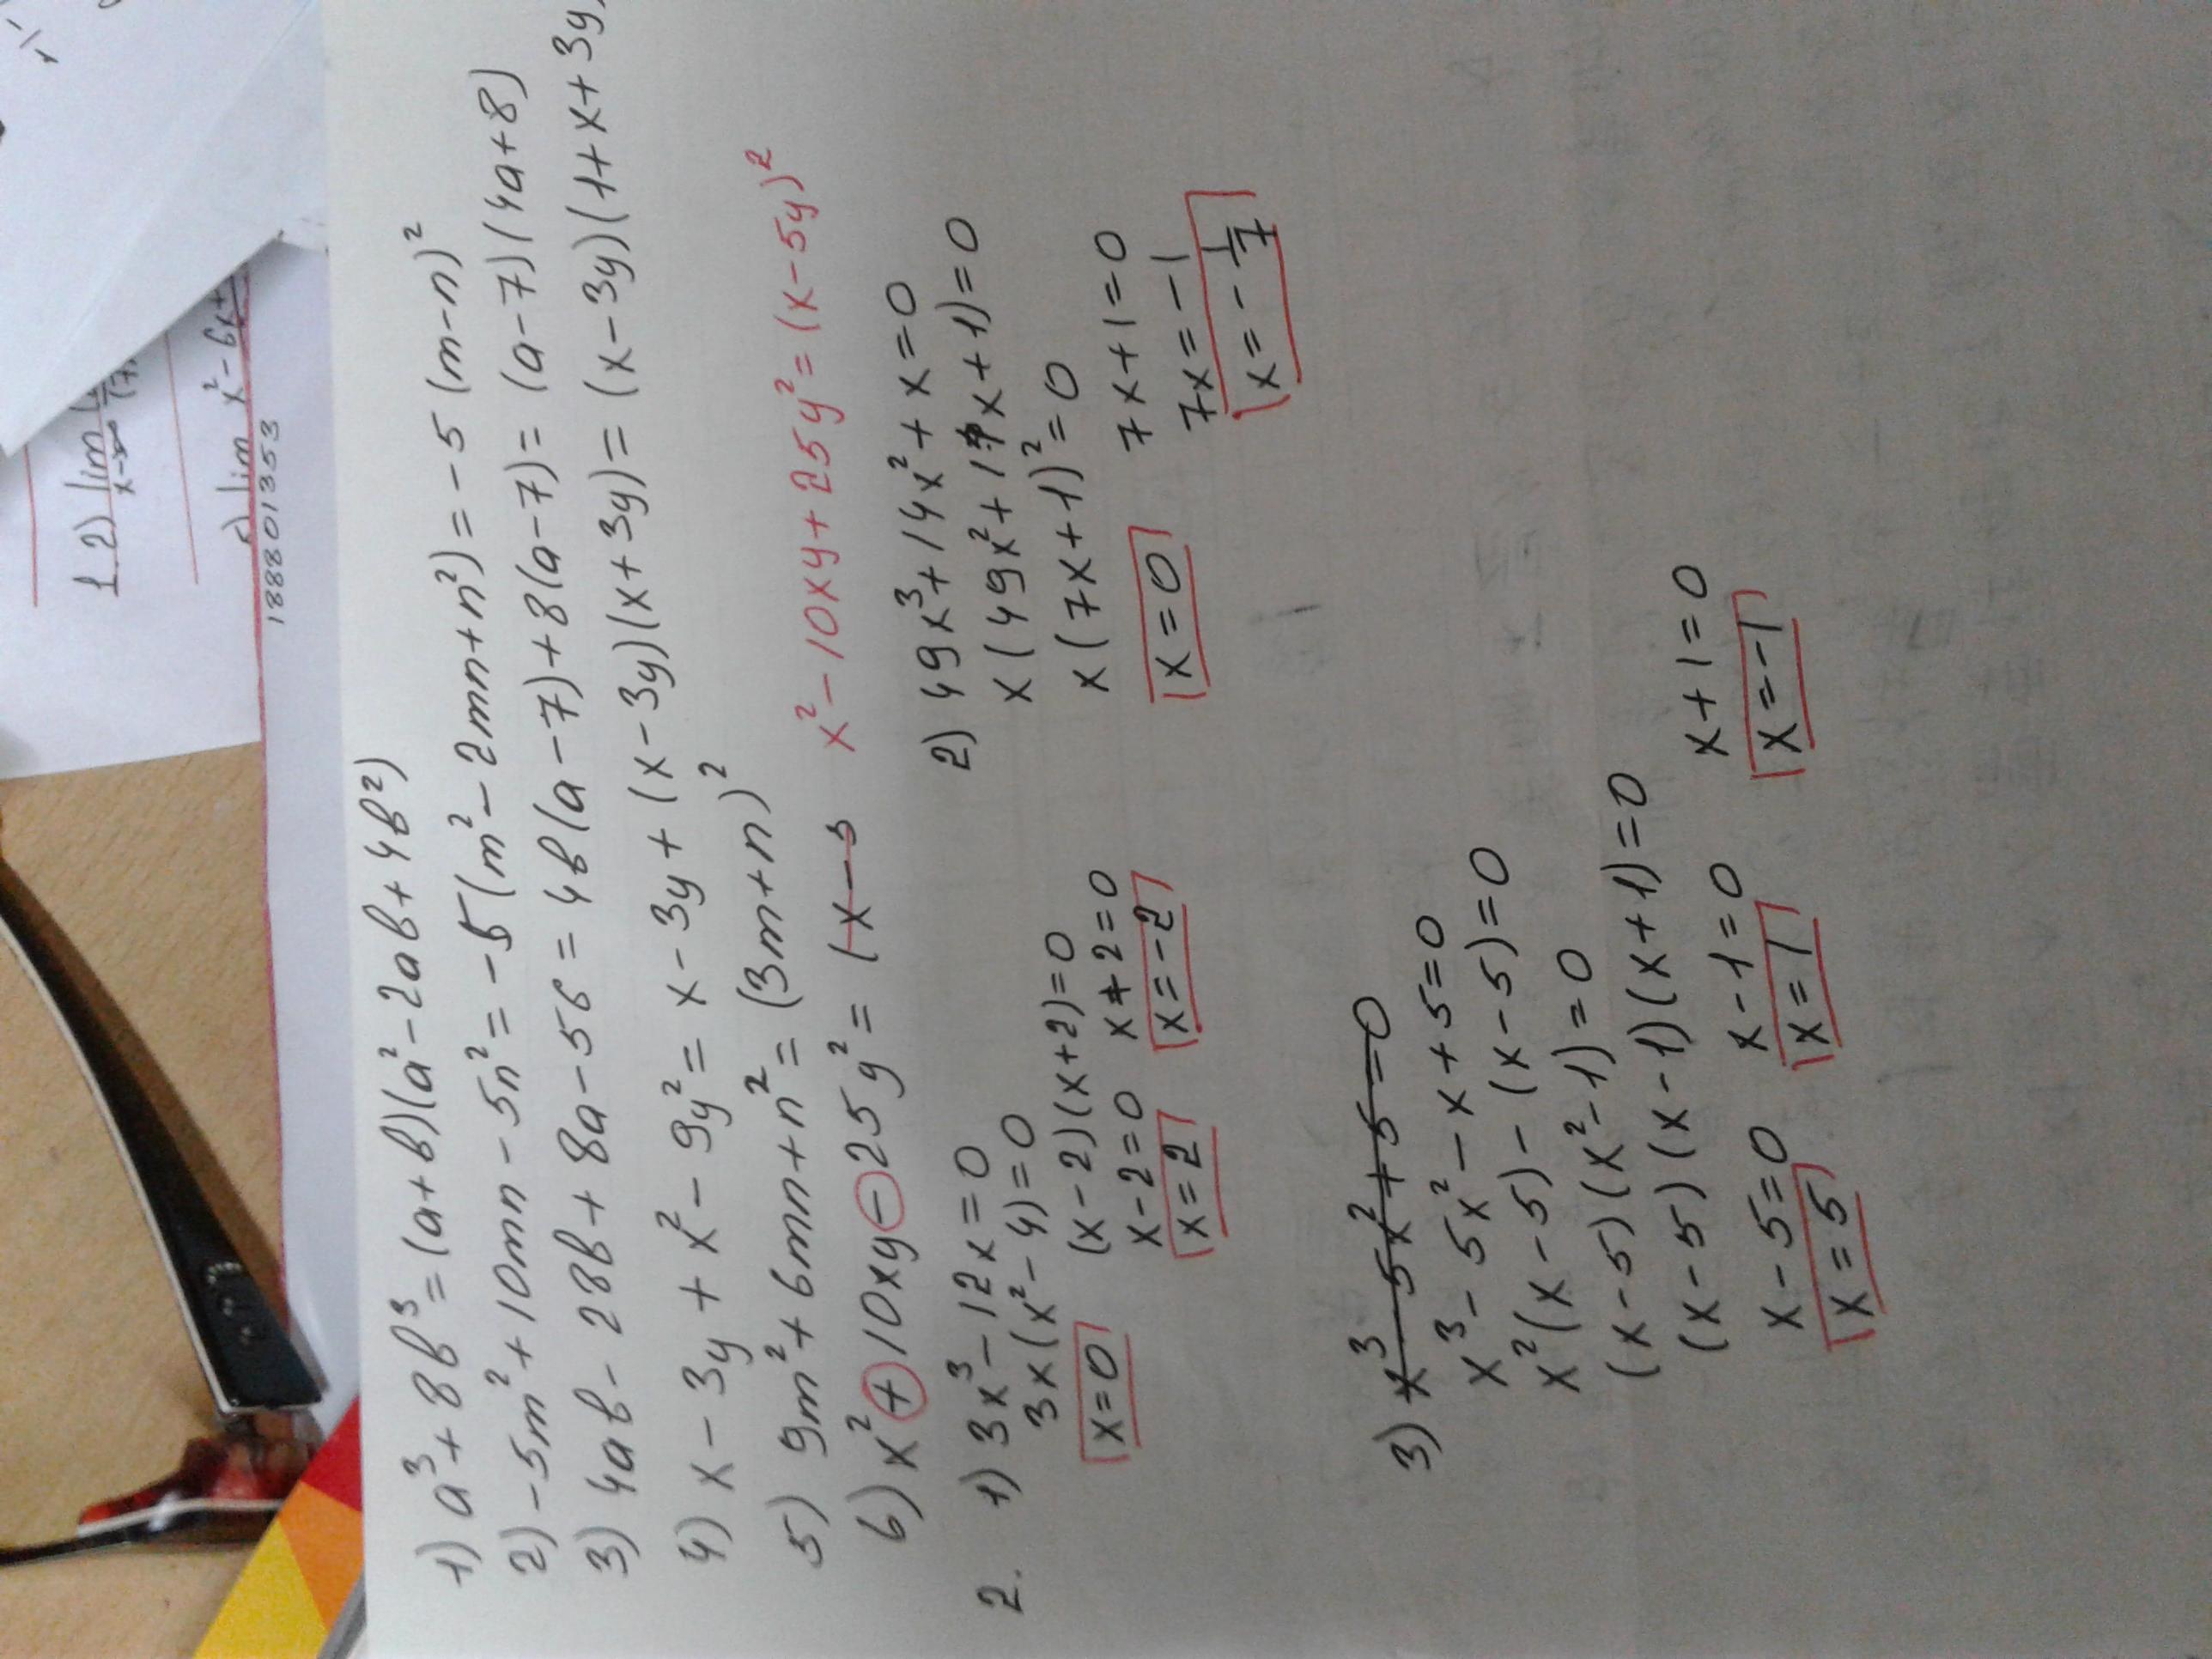 1) a³+8b³=(a+b)(a²-2ab+4b²)
2) -5m²+10mn-5n²=-5(m²-2mn+n²)=-5(m-n)²
3) 4ab-28b+8a-56=4b(a-7)+8(a-7)=(a-7)(4a+8)
4) x-3y+x²-9y²=x-3y+(x-3y)(x+3y)=(x-3y)(1+x+3y)
5) 9m²+6mn+n²=(3m+n)²
6) x²+10xy-25y²=(x-5 x²-10xy+25y²=(x-5y)²
2. 1) 3x³-12x=0
3x(x²-4)=0
x=0 (x-2)(x+2)=0
x-2=0 x+2=0
x=2 x=-2
2) 49x³+14x²+x=0
x(49x²+14x+1)=0
x(7x+1)²=0
x=0 7x+1=0
7x=-1
x=-1/7
3) x³-5x²+5=0
x³-5x²-x+5=0
x²(x-5)-(x-5)=0
(x-5)(x²-1)=0
(x-5)(x-1)(x+1)=0
x-5=0 x-1=0 x+1=0
x=5 x=1 x=-1
1.2) lim
x→∞
lim x²-6x+
1888013 53